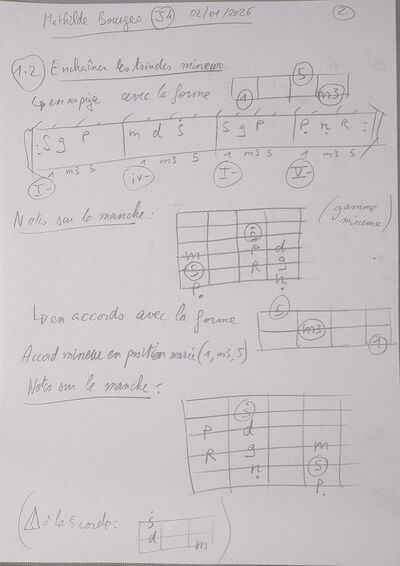 Mathilde Bourges S4 02/01/2026 2
1.2 Enchaîner les triades mineur
↳ en arpège avec la forme
5
1 m3
: S g P | m d Ṡ | S g P | P n R :
1 m3 5 1 m3 5 1 m3 5 1 m3 5
I- iv- I- V-
Notes sur le manche : (gamme mineure)
ṡ
m P d
S R g
P n
↳ en accords avec la forme
5
m3
1
Accord mineur en position serrée (1, m3, 5)
Notes sur le manche :
ṡ
P d
R g m
n S
P
(⚠ à la 5 corde : ṡ
d m)